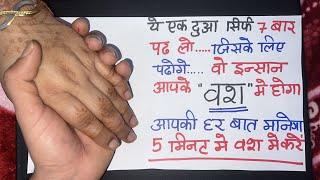 ये एक दुआ सिर्फ 7 बार
पढ़ लो..... जिसके लिए
पढोगे.... वो इन्सान
आपके "वश" मे होगा
आपकी हर बात मानेगा
5 मिनट मे वश मे करें